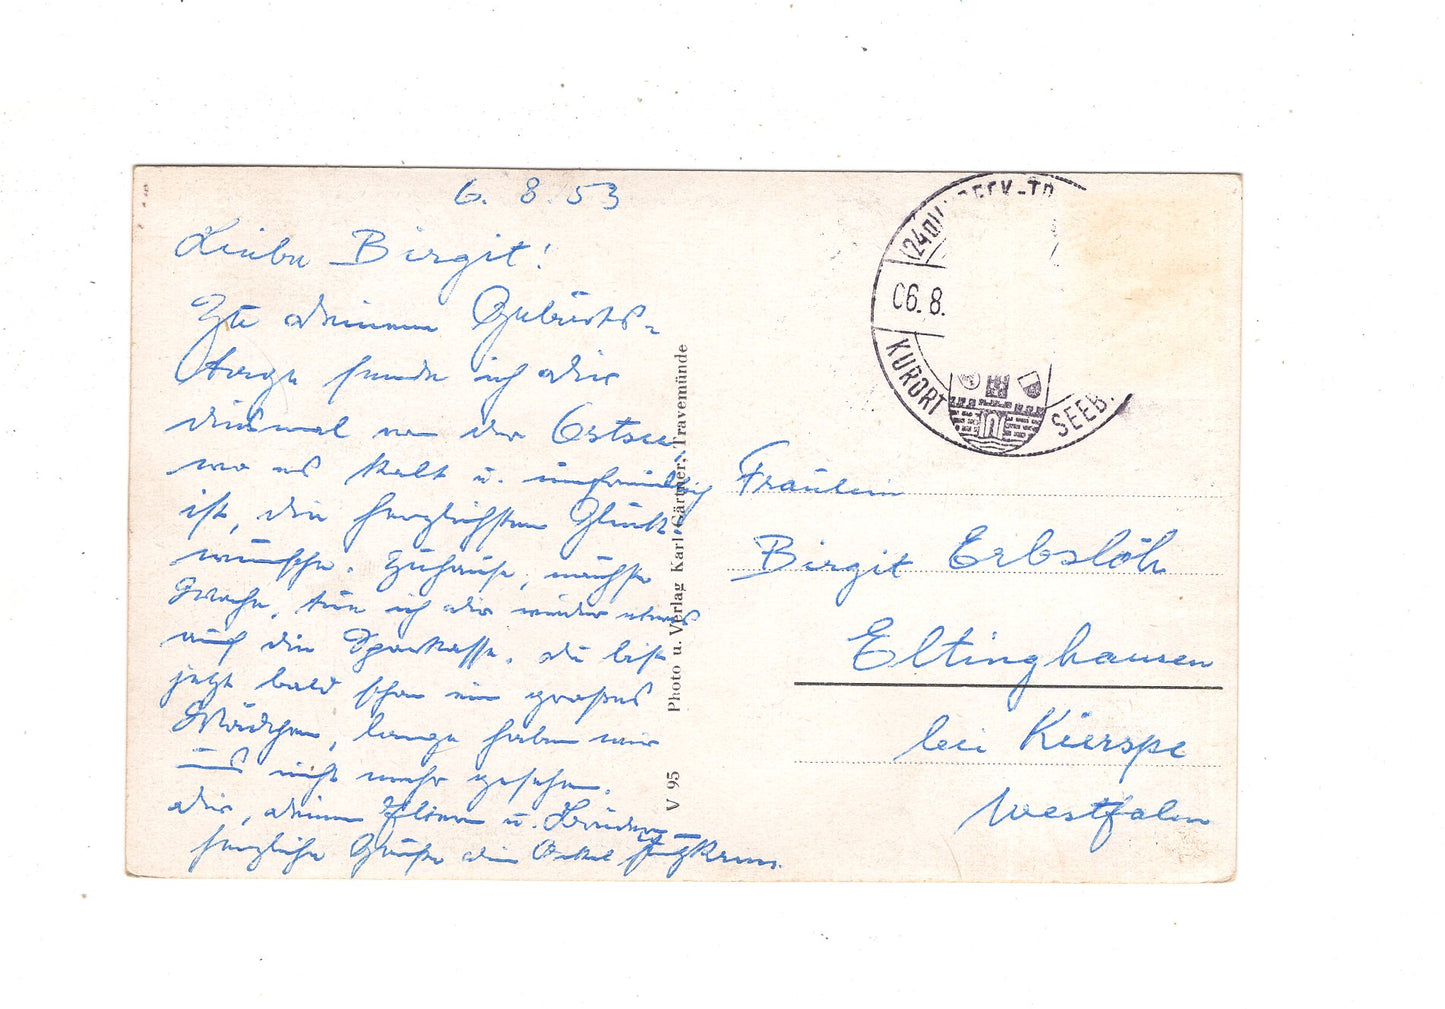 6. 8. 53
Liebe Birgit!
Zu deinem Geburts-
tage sende ich dir
diesmal von der Ostsee
wo es kalt u. unfreundlich
ist, die herzlichsten Glück-
wünsche. Zuhause, nächste
Woche, tue ich dir wieder etwas
auf die Sparkasse. Du bist
jetzt bald schon ein großes
Mädchen, lange haben wir
uns nicht mehr gesehen.
Dir, deinen Eltern u. Brüdern
herzliche Grüße dein Onkel
Photo u. Verlag Karl Gärtner, Travemünde
V 95
06. 8.
KURORT
SEEB
Fräulein
Birgit Erbslöh
Eltinghausen
bei Kierspe
Westfalen